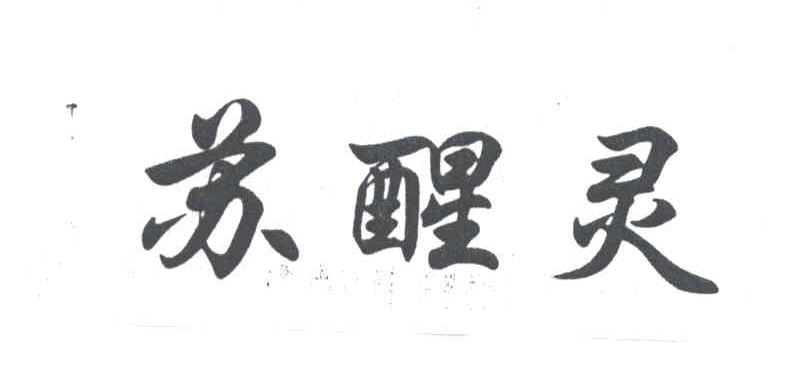 苏醒灵